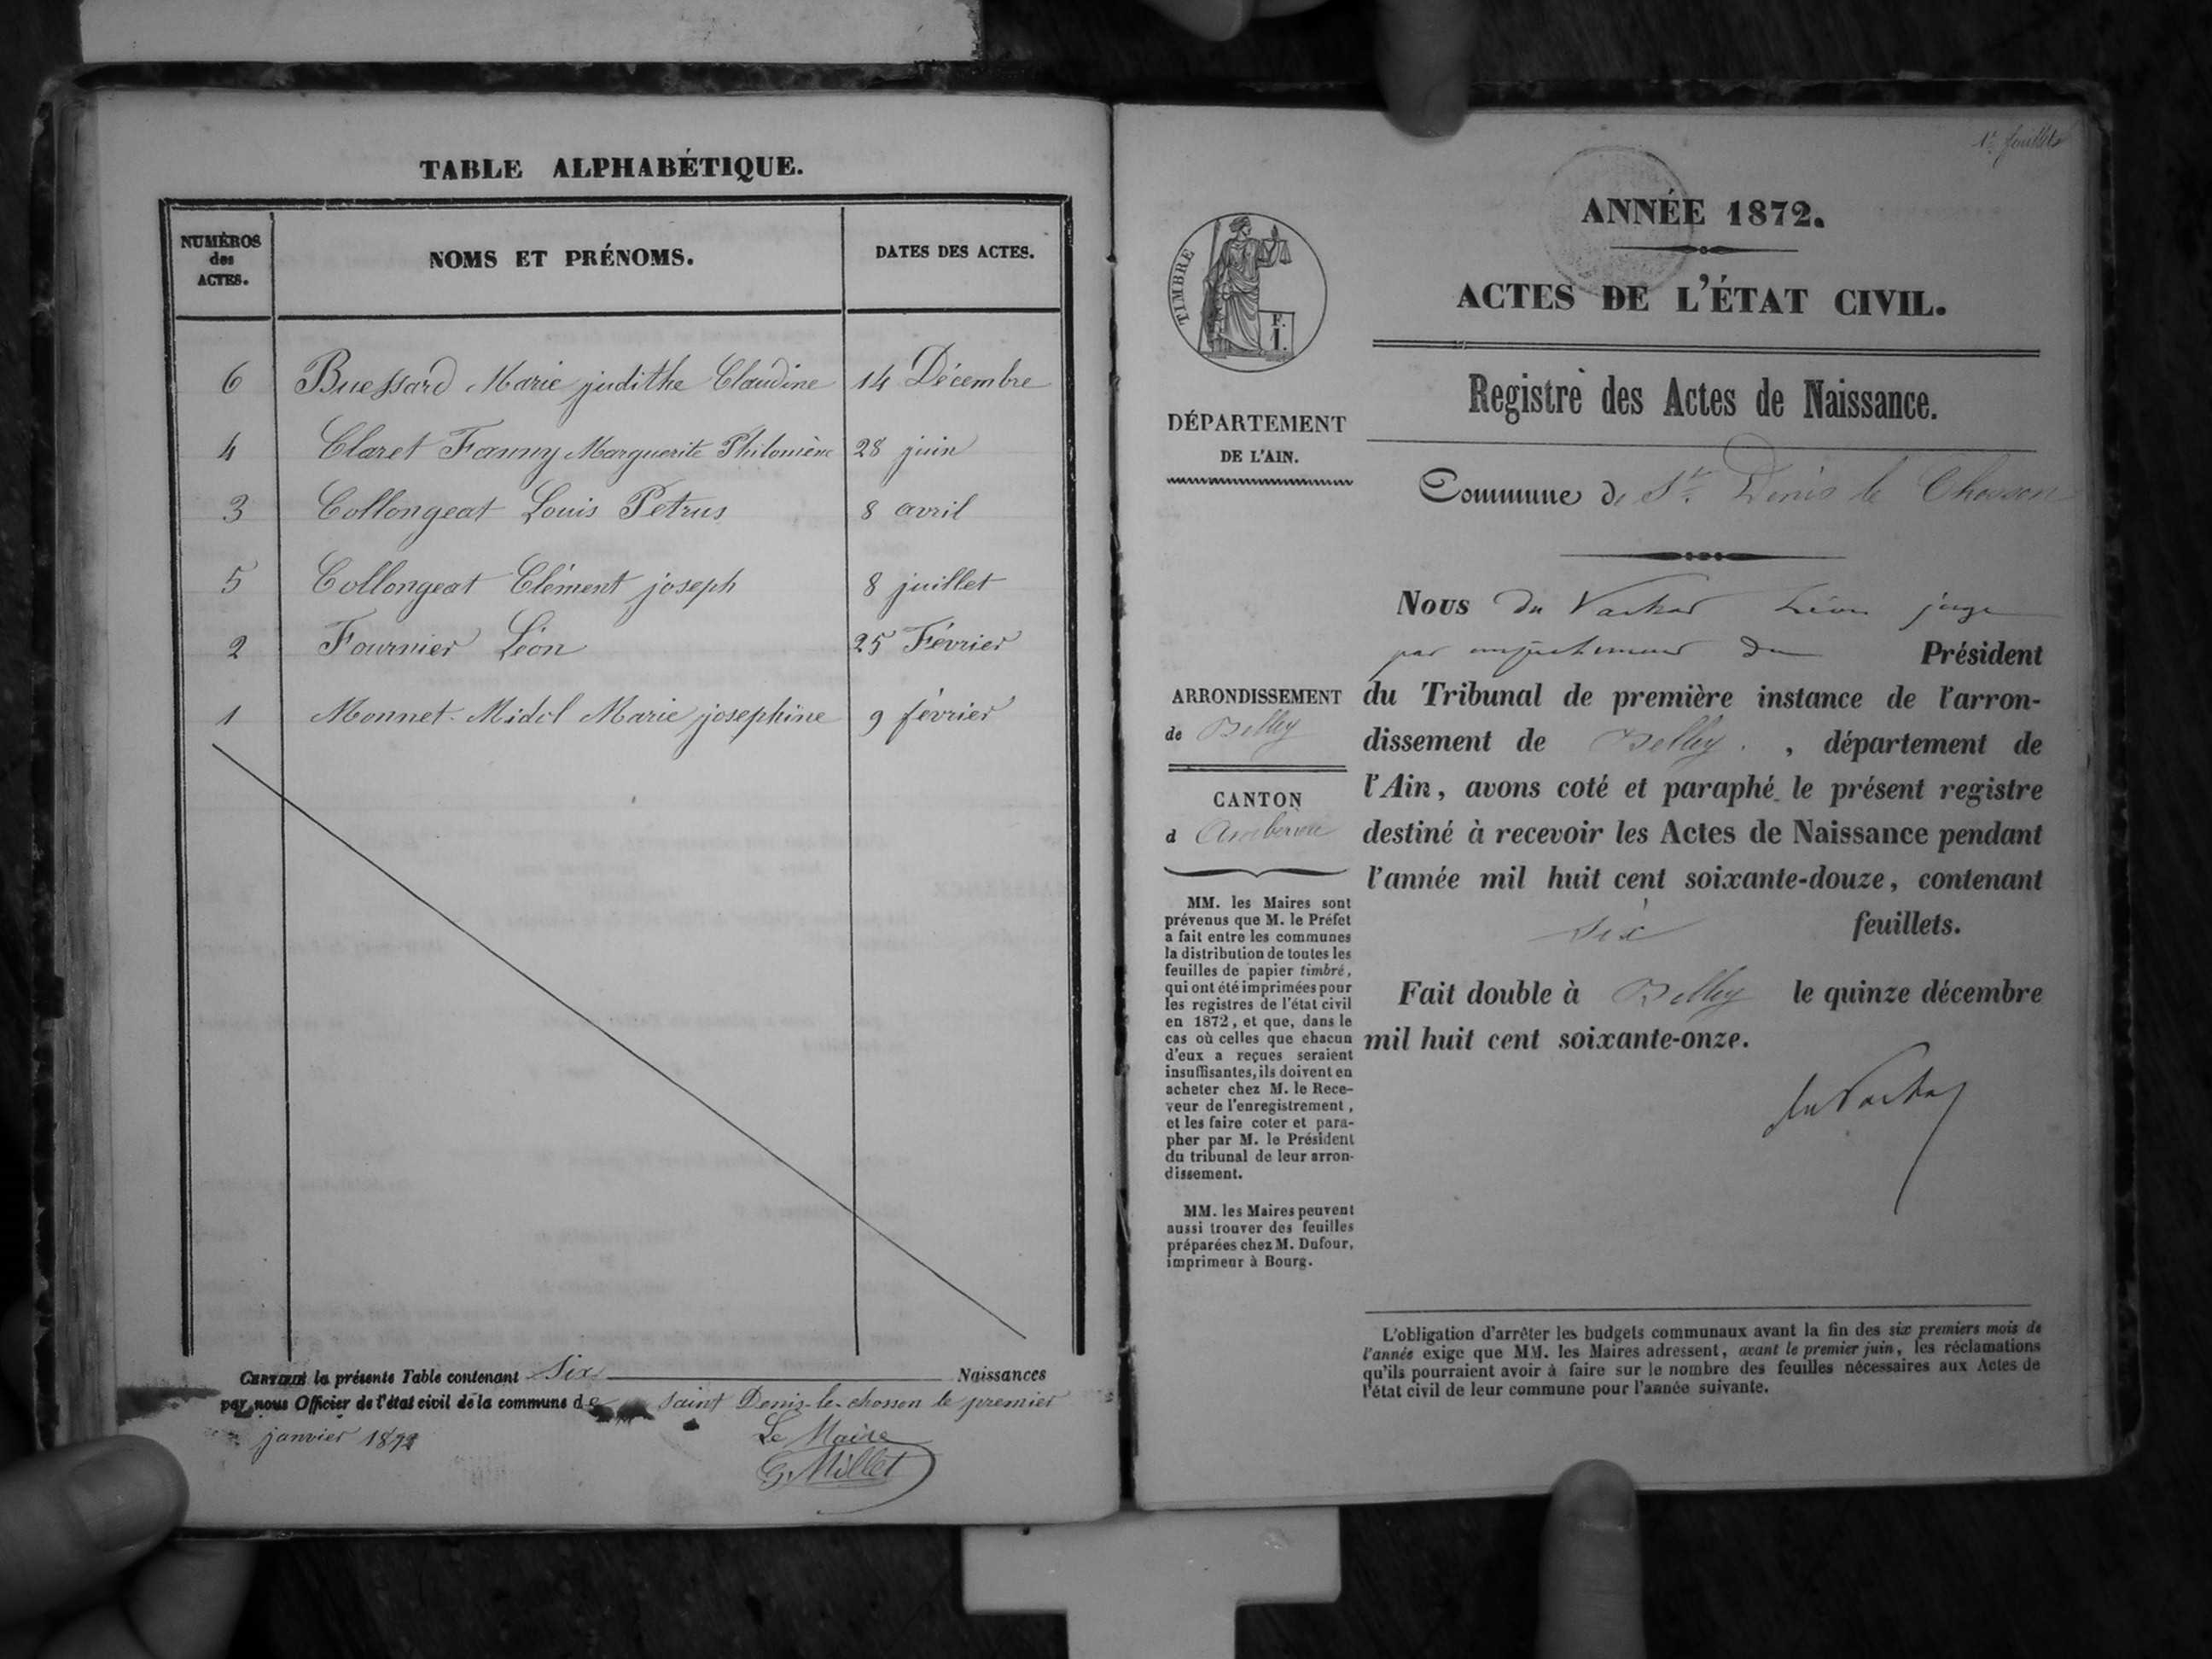 TABLE ALPHABÉTIQUE.
NUMÉROS des ACTES.
NOMS ET PRÉNOMS.
DATES DES ACTES.
6 Buessard Marie judithe Claudine 14 Décembre
4 Claret Fanny Marguerite Philomène 28 juin
3 Collongeat Louis Petrus 8 avril
5 Collongeat Clément joseph 8 juillet
2 Fournier Léon 25 Février
1 Monnet-Midol Marie josephine 9 février
CERTIFIÉ la présente Table contenant Six Naissances
par nous Officier de l'état civil de la commune de saint Denis-le-chosson le premier
janvier 1872
Le Maire
G. Millet
feuillets
ANNÉE 1872.
ACTES DE L'ÉTAT CIVIL.
TIMBRE
F.
I.
Registre des Actes de Naissance.
DÉPARTEMENT
DE L'AIN.
Commune de St. Denis le Chosson
Nous du Léon juge
par empêchement du Président
du Tribunal de première instance de l'arron-
dissement de Belley. , département de
l'Ain, avons coté et paraphé le présent registre
destiné à recevoir les Actes de Naissance pendant
l'année mil huit cent soixante-douze, contenant
six feuillets.
Fait double à Belley le quinze décembre
mil huit cent soixante-onze.
ARRONDISSEMENT
de Belley
CANTON
d Ambérieu
MM. les Maires sont
prévenus que M. le Préfet
a fait entre les communes
la distribution de toutes les
feuilles de papier timbré,
qui ont été imprimées pour
les registres de l'état civil
en 1872, et que, dans le
cas où celles que chacun
d'eux a reçues seraient
insuffisantes, ils doivent en
acheter chez M. le Rece-
veur de l'enregistrement,
et les faire coter et para-
pher par M. le Président
du tribunal de leur arron-
dissement.
MM. les Maires peuvent
aussi trouver des feuilles
préparées chez M. Dufour,
imprimeur à Bourg.
L'obligation d'arrêter les budgets communaux avant la fin des six premiers mois de
l'année exige que MM. les Maires adressent, avant le premier juin, les réclamations
qu'ils pourraient avoir à faire sur le nombre des feuilles nécessaires aux Actes de
l'état civil de leur commune pour l'année suivante.